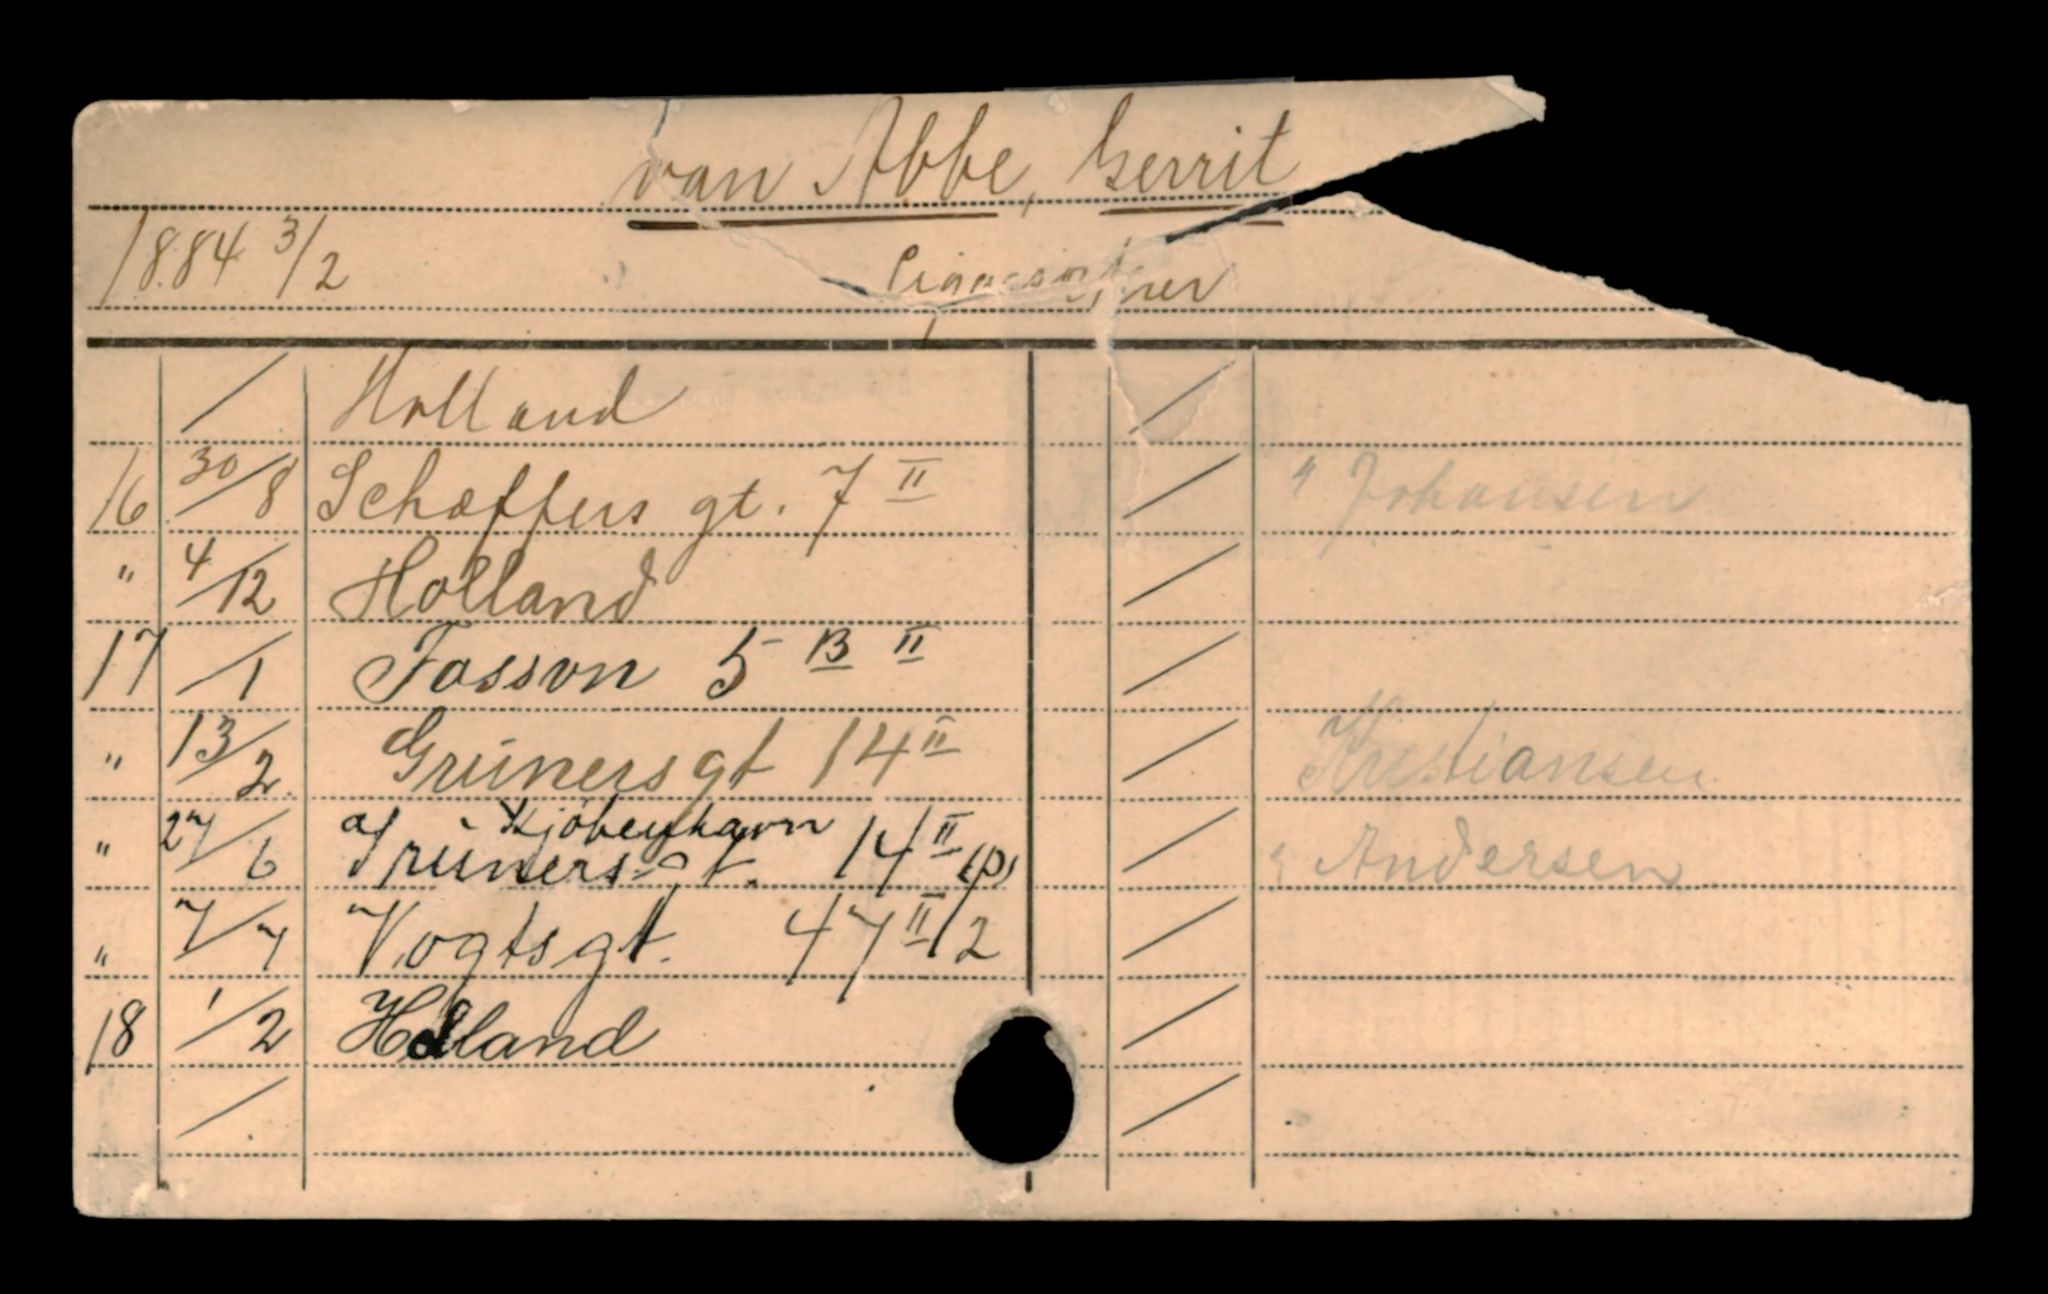 van Abbe, Gerrit
1884 3/2
/ Holland /
16 30/8 Schæffers gt. 7 II / " Johansen
" 4/12 Holland /
17 /1 Fossvn 5 B II /
" 13/2 Grünersgt 14 II / Kristiansen
Kjöbenhavn
" 27/6 Grüners gt. 14 II / " Andersen
" 7/7 Vogtsgt. 47 II /2 /
18 1/2 Holland /
/ /